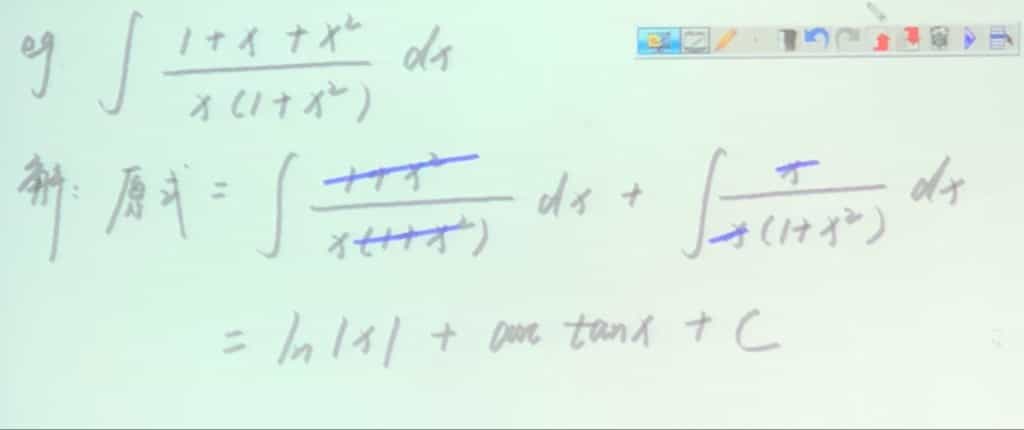 eg ∫ (1+x+x²)/(x(1+x²)) dx
解: 原式 = ∫ (1+x²)/(x(1+x²)) dx + ∫ x/(x(1+x²)) dx
= ln|x| + arc tanx + C